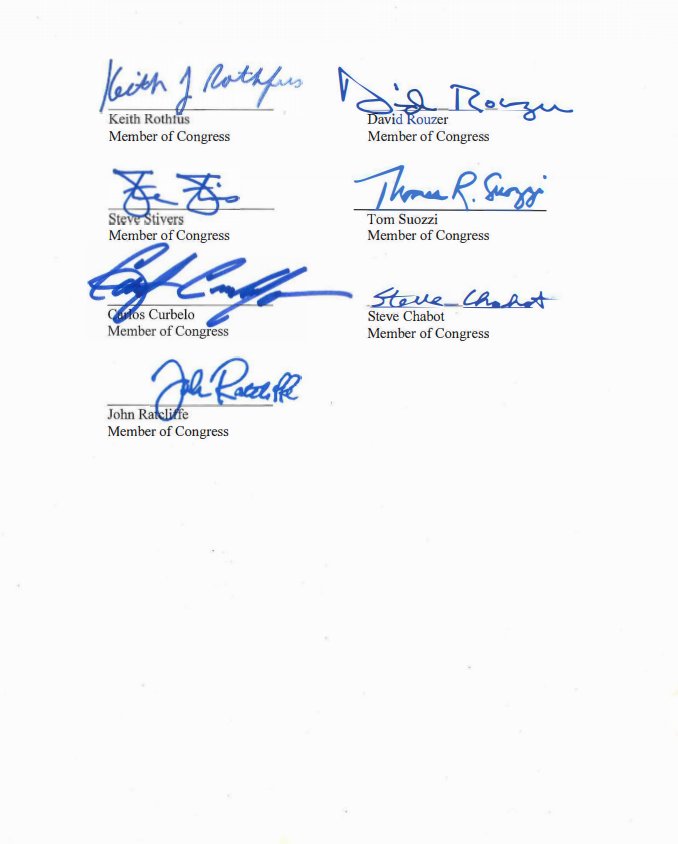 Keith J Rothfus
Keith Rothfus
Member of Congress
David Rouzer
David Rouzer
Member of Congress
Steve Stivers
Steve Stivers
Member of Congress
Thomas R. Suozzi
Tom Suozzi
Member of Congress
Carlos Curbelo
Member of Congress
Steve Chabot
Steve Chabot
Member of Congress
John Ratcliffe
John Ratcliffe
Member of Congress